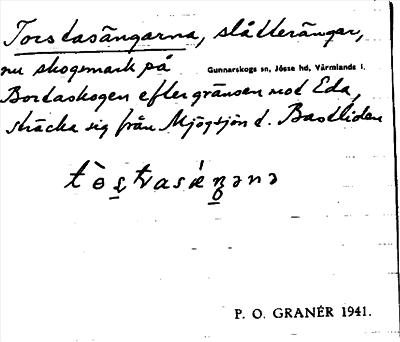 Torstasängarna, slåtterängar,
nu skogsmark på
Gunnarskogs sn, Jösse hd, Värmlands l.
Bordaskogen efter gränsen mot Eda,
sträcka sig från Mjögsjön t. Bastliden
P. O. GRANÉR 1941.